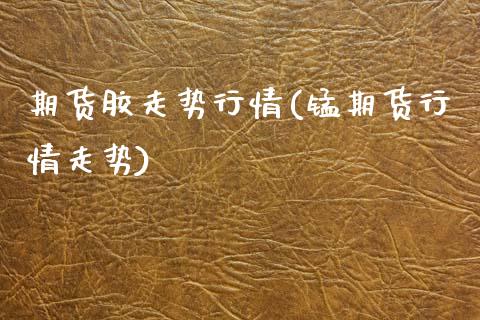 期货胶走势行情(锰期货行
情走势)